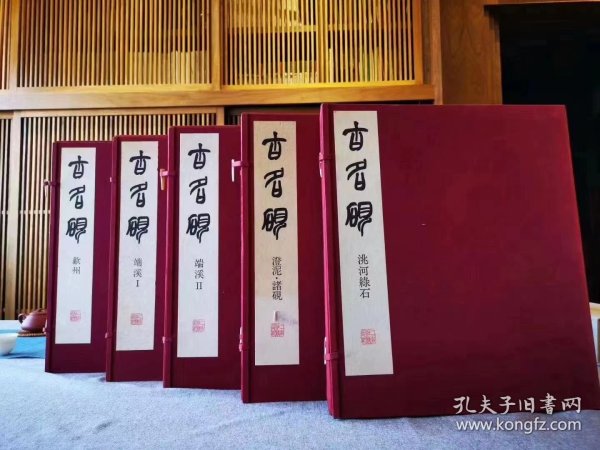 古名硯
歙州
古名硯
端溪I
古名硯
端溪II
古名硯
澄泥・諸硯
古名硯
洮河綠石
孔夫子旧書网
www.kongfz.com